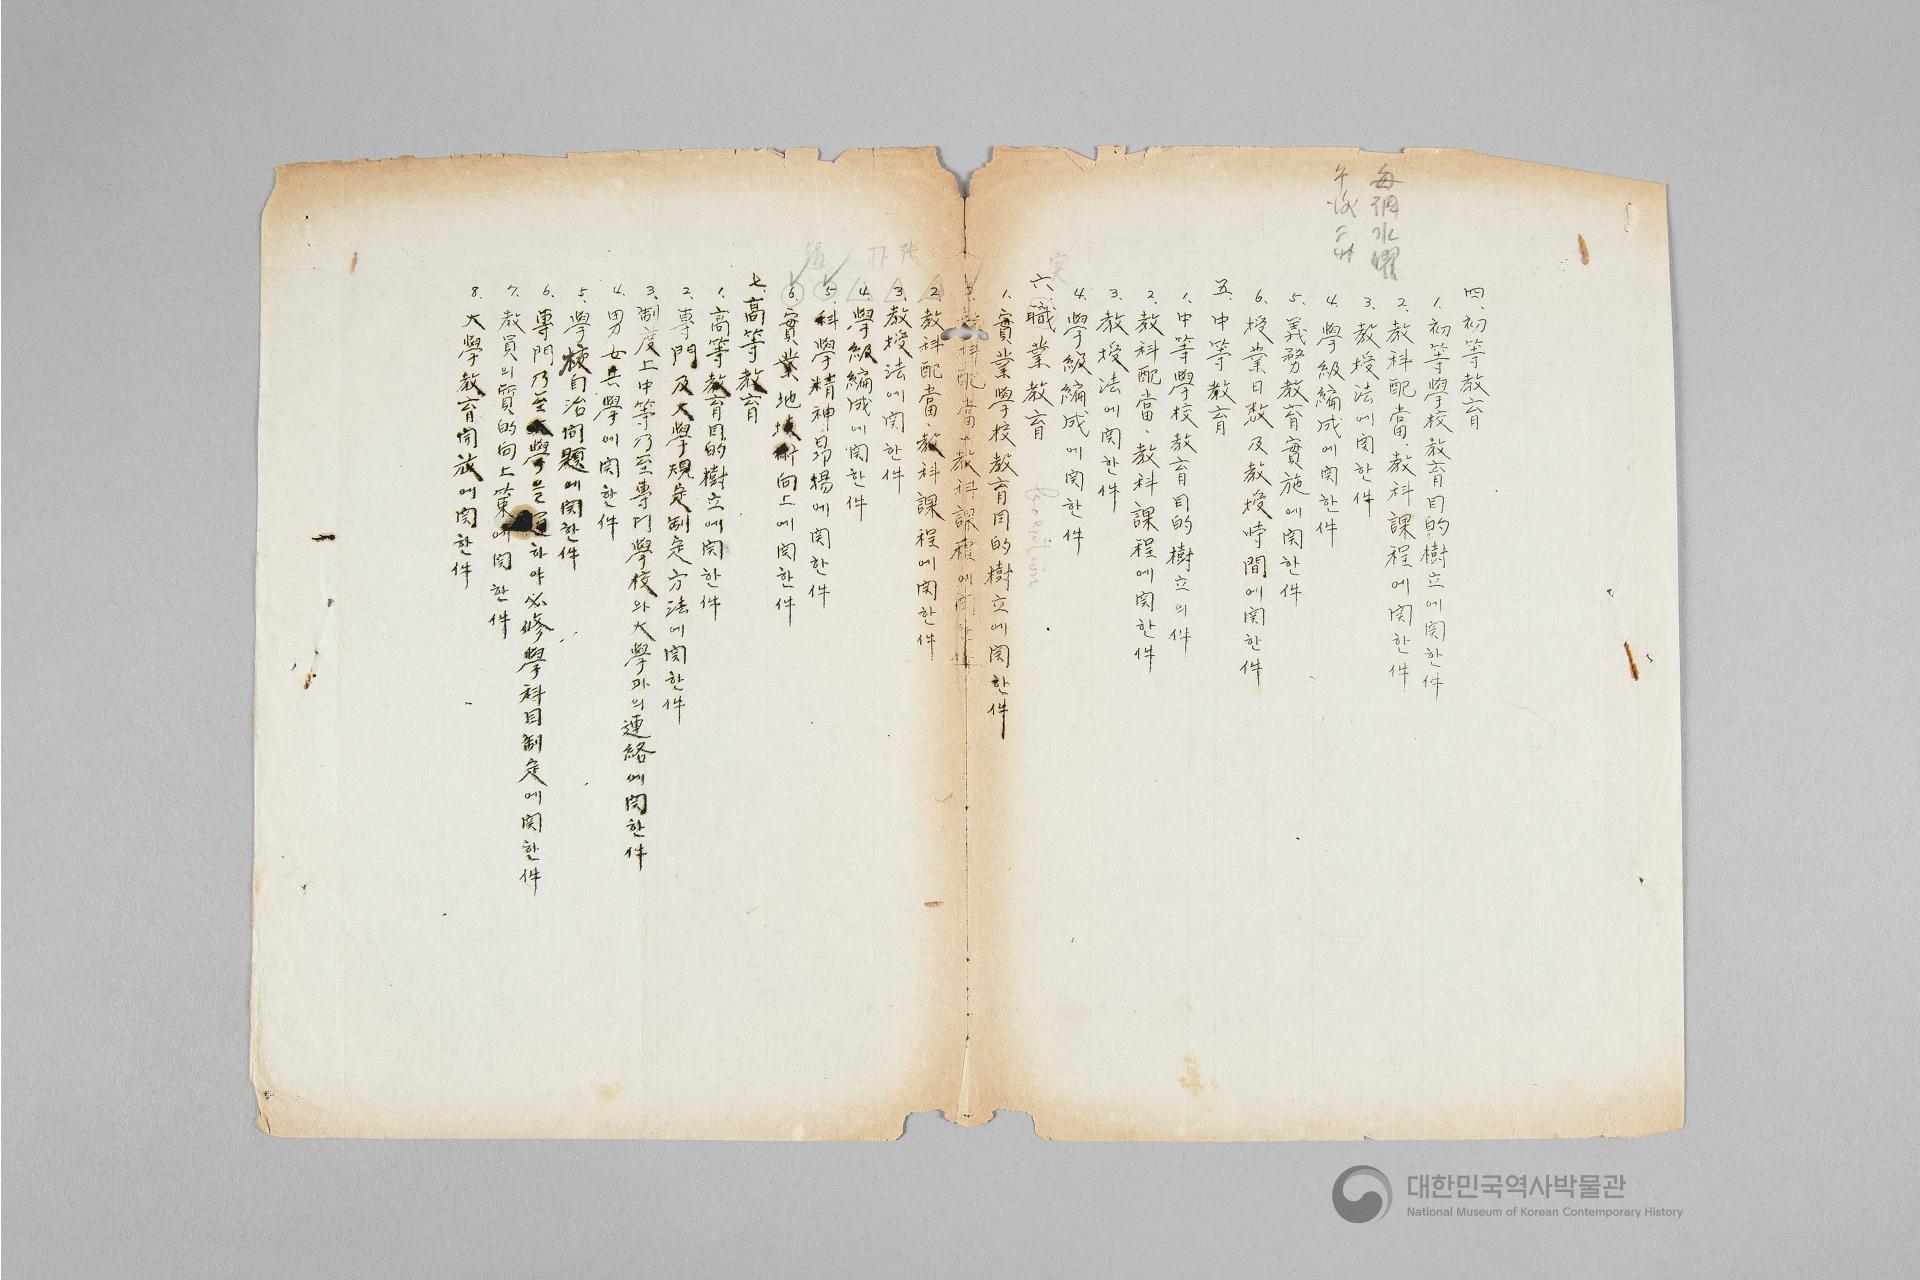 每週水曜
午後
四. 初等教育
1. 初等學校教育目的樹立에関한件
2. 教科配當、教科課程에関한件
3. 教授法에関한件
4. 學級編成에関한件
5. 義務教育實施에関한件
6. 授業日数及教授時間에関한件
五. 中等教育
1. 中等學校教育目的樹立의件
2. 教科配當、教科課程에関한件
3. 教授法에関한件
4. 學級編成에関한件
実
六. 職業教育
1. 實業學校教育目的樹立에関한件
2. 教科配當、教科課程에関한件
2. 教科配當、教科課程에関한件
3. 教授法에関한件
4. 學級編成에関한件
5. 科學精神昂揚에関한件
6. 實業地 術向上에関한件
張
朴
七. 高等教育
1. 高等教育目的樹立에関한件
2. 專門及大學規定制定方法에関한件
3. 制度上中等乃至專門學校와大學과의連絡에関한件
4. 男女共學에関한件
5. 學校自治問題에関한件
6. 專門乃至大學을 하야必修學科目制定에関한件
7. 教員의質的向上策에関한件
8. 大學教育開放에関한件
대한민국역사박물관
National Museum of Korean Contemporary History